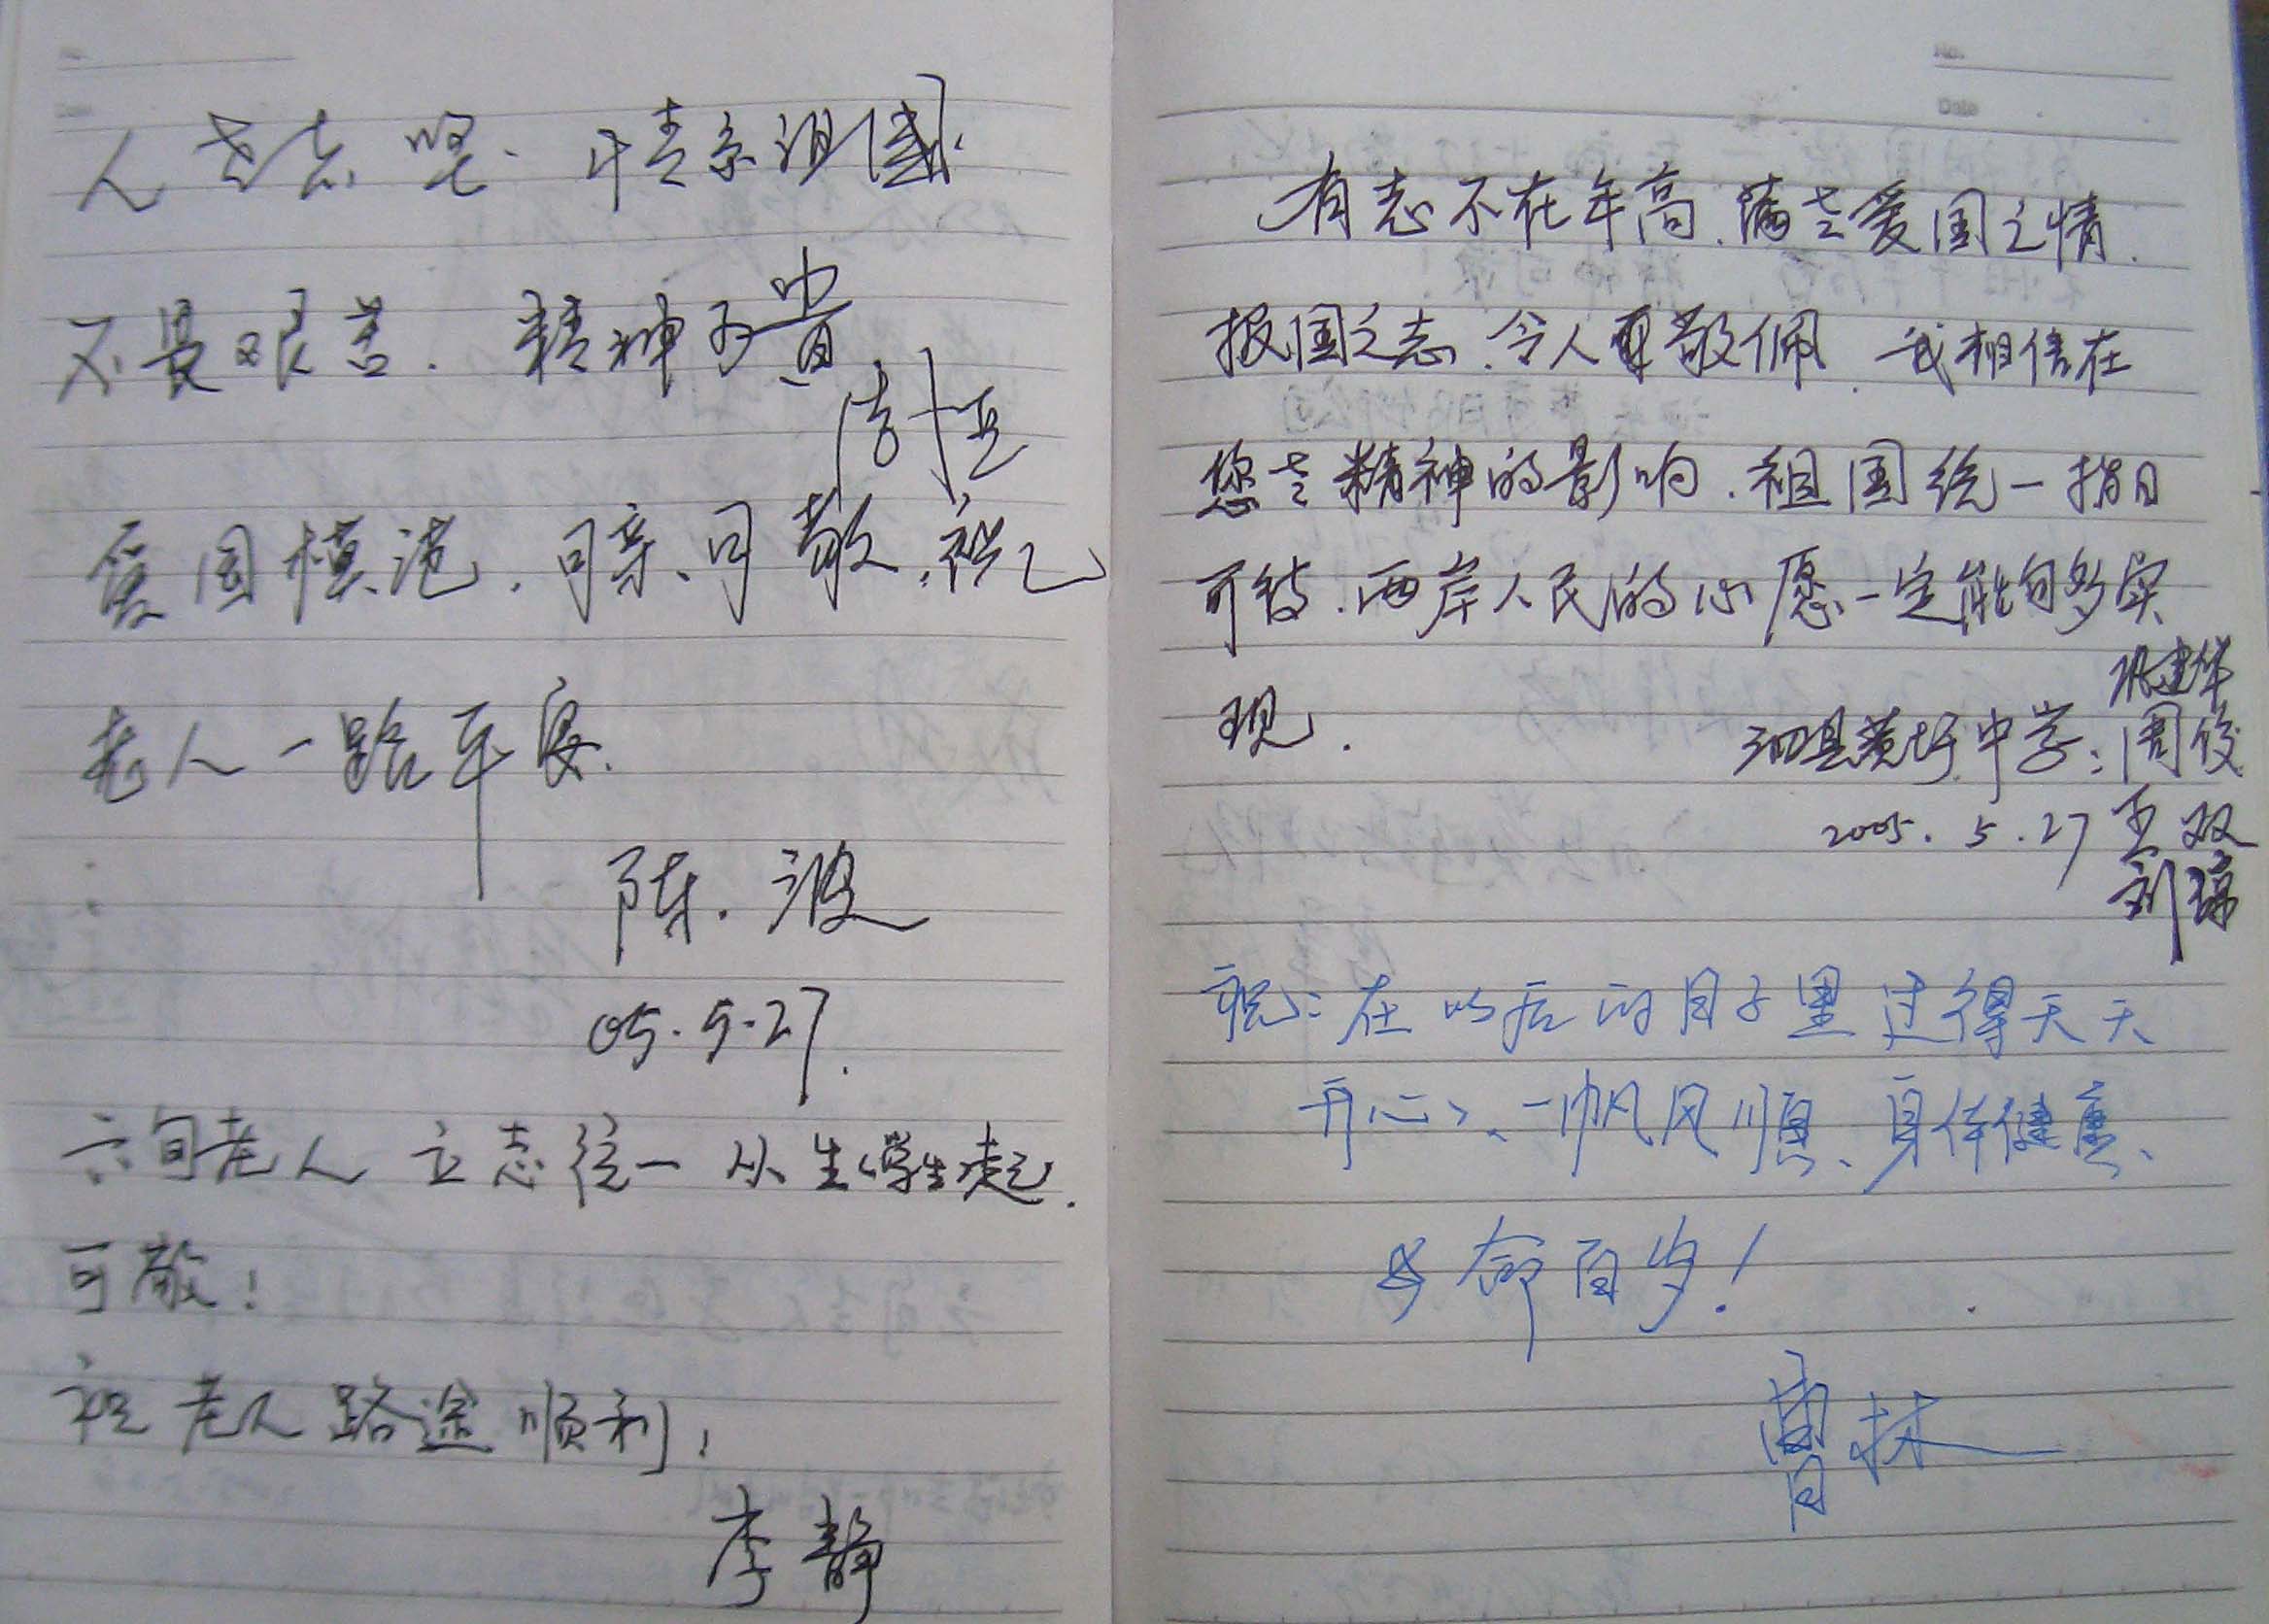 人老志坚.情系祖国.
不畏艰苦.精神可贵
爱国模范.可亲.可敬.祝
老人一路平安.
陈.波
05.5.27.
六旬老人 立志统一 从 学生起.
可敬!
祝老人路途顺利!
李静
有志不在年高.满老爱国之情.
报国之志.令人敬佩.我相信在
您老精神的影响.祖国统一指日
可待.两岸人民的心愿一定能够实
现.
建华
泗县黄圩中学:周俊
2005.5.27 王双
刘琼
祝:在以后的日子里过得天天
开心、一帆风顺、身体健康、
命百岁!
曹林